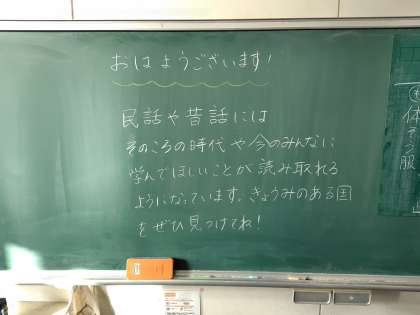 おはようございます!
民話や昔話には
そのころの時代や今のみんなに
学んでほしいことが読み取れる
ようになっています。きょうみのある国
をぜひ見つけてね!
体
服